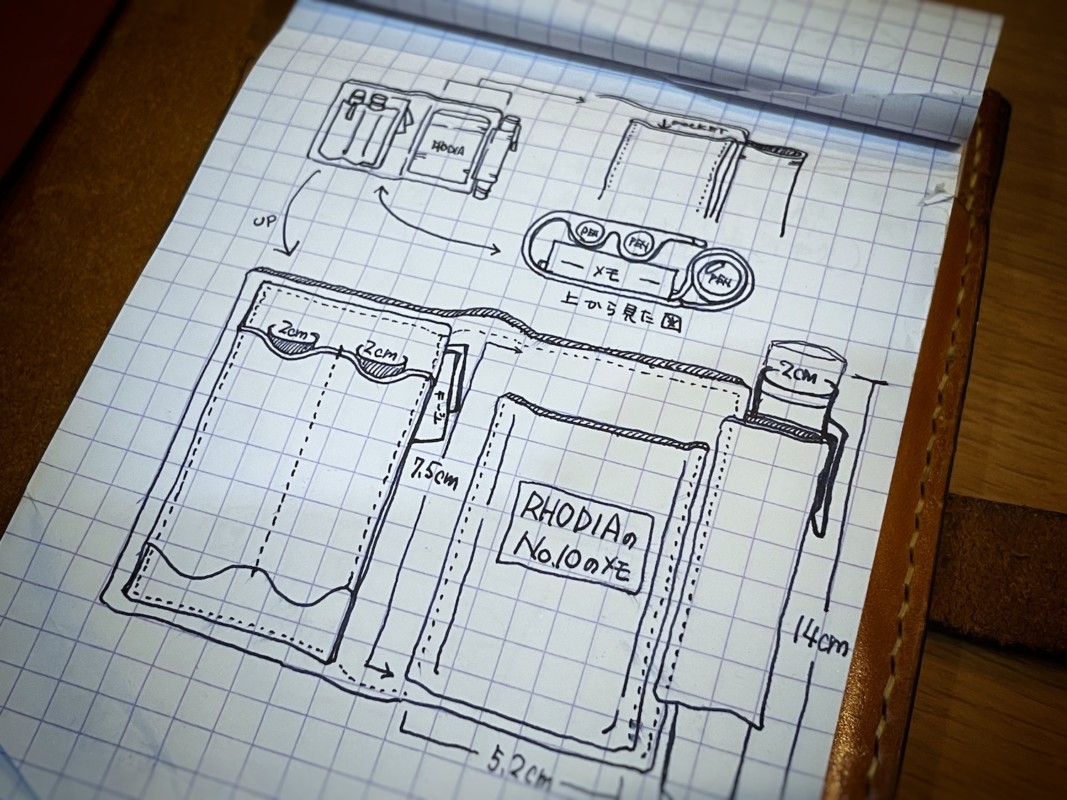 RHODIA
↓POCKET
UP
PEN
PEN
メモ
PEN
上から見た図
2cm
2cm
2cm
7.5cm
RHODIAの
No.10のメモ
14cm
5.2cm